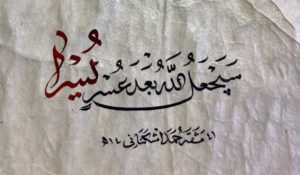 سَيَجْعَلُ اللّٰهُ بَعْدَ عُسْرٍ يُسْرًا
مشقه